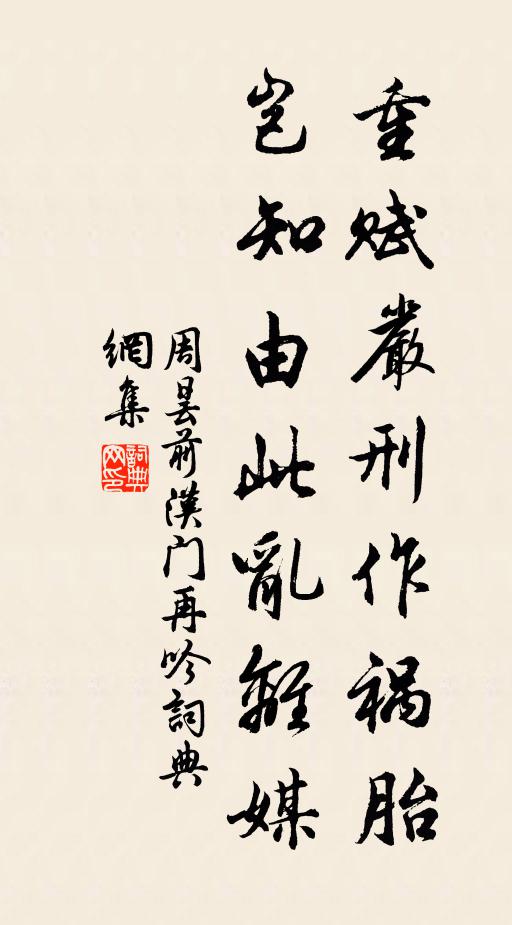 重賦嚴刑作祸胎
岂知由此亂離媒
周昙前漢门再吟詞典
網集
詞典
网印